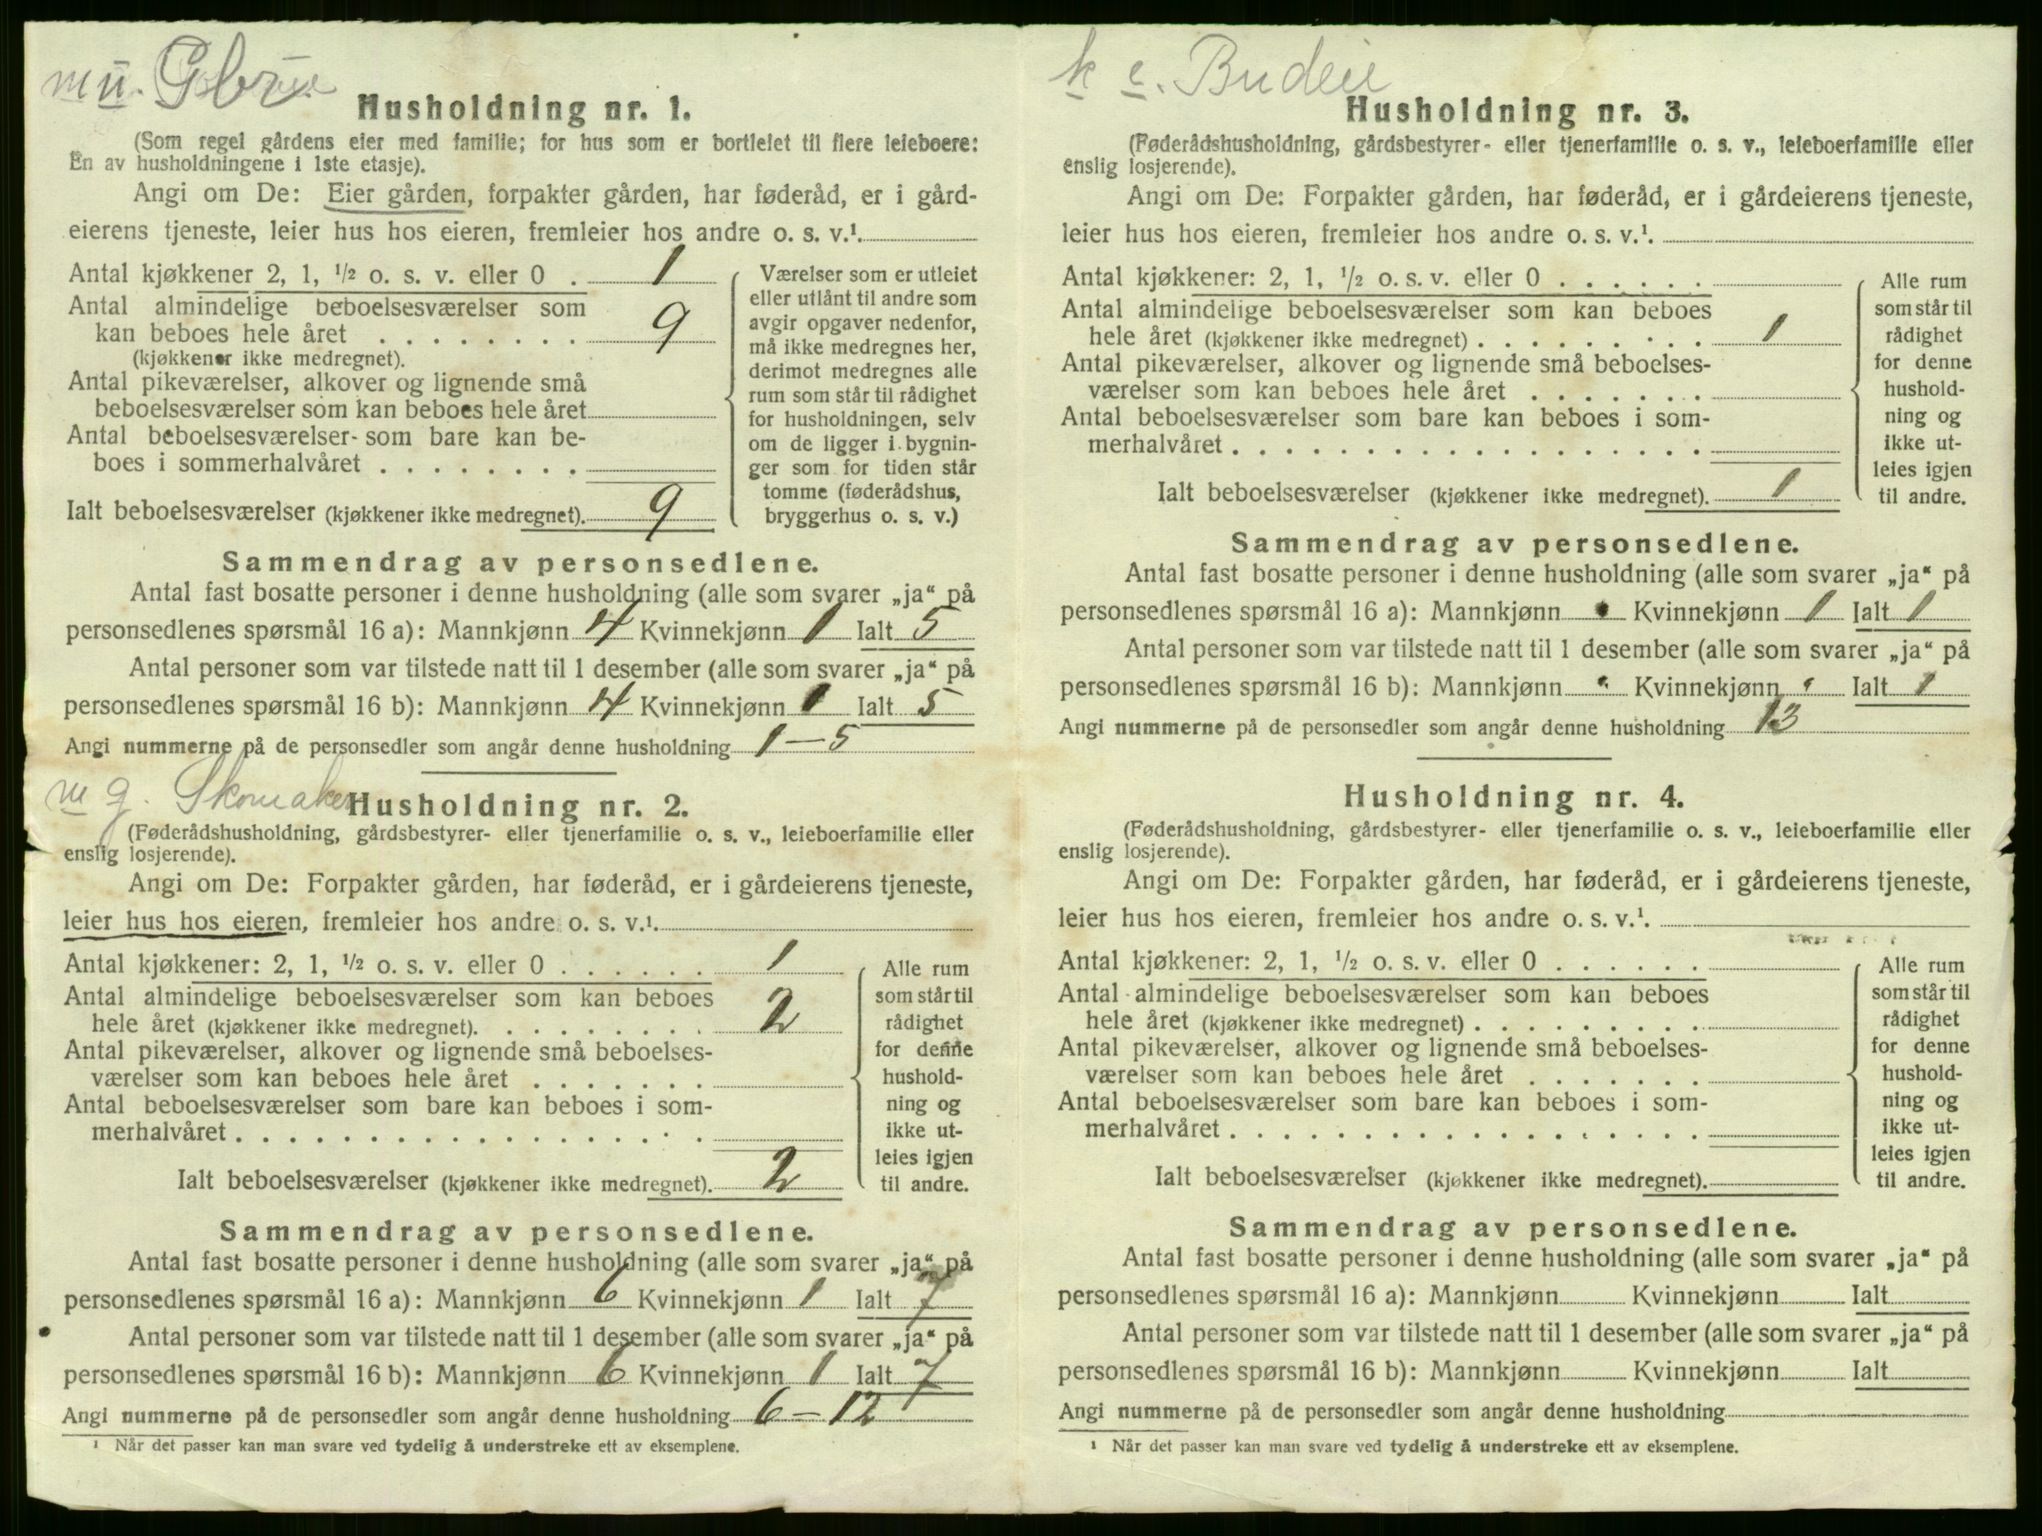 m ü. Gbr.
Husholdning nr. 1.
(Som regel gårdens eier med familie; for hus som er bortleiet til flere leieboere:
En av husholdningene i 1ste etasje).
Angi om De: Eier gården, forpakter gården, har føderåd, er i gård-
eierens tjeneste, leier hus hos eieren, fremleier hos andre o. s. v.¹.
Antal kjøkkener 2, 1, ½ o. s. v. eller 0 . 1
Antal almindelige beboelsesværelser som
kan beboes hele året . . . . . . . . 9
(kjøkkener ikke medregnet).
Antal pikeværelser, alkover og lignende små
beboelsesværelser som kan beboes hele året
Antal beboelsesværelser som bare kan be-
boes i sommerhalvåret . . . . . . . .
Ialt beboelsesværelser (kjøkkener ikke medregnet). 9
Værelser som er utleiet
eller utlånt til andre som
avgir opgaver nedenfor,
må ikke medregnes her,
derimot medregnes alle
rum som står til rådighet
for husholdningen, selv
om de ligger i bygnin-
ger som for tiden står
tomme (føderådshus,
bryggerhus o. s. v.)
Sammendrag av personsedlene.
Antal fast bosatte personer i denne husholdning (alle som svarer „ja“ på
personsedlenes spørsmål 16 a): Mannkjønn 4 Kvinnekjønn 1 Ialt 5
Antal personer som var tilstede natt til 1 desember (alle som svarer „ja“ på
personsedlenes spørsmål 16 b): Mannkjønn 4 Kvinnekjønn 1 Ialt 5
Angi nummerne på de personsedler som angår denne husholdning 1 – 5
m g. Skomaker
Husholdning nr. 2.
(Føderådshusholdning, gårdsbestyrer- eller tjenerfamilie o. s. v., leieboerfamilie eller
enslig losjerende).
Angi om De: Forpakter gården, har føderåd, er i gårdeierens tjeneste,
leier hus hos eieren, fremleier hos andre o. s. v.¹.
Antal kjøkkener: 2, 1, ½ o. s. v. eller 0 . . . . . . 1
Antal almindelige beboelsesværelser som kan beboes
hele året (kjøkkener ikke medregnet). . . . . . . . . 2
Antal pikeværelser, alkover og lignende små beboelses-
værelser som kan beboes hele året . . . . . . .
Antal beboelsesværelser som bare kan beboes i som-
merhalvåret . . . . . . . . . . . . . . . . . .
Ialt beboelsesværelser (kjøkkener ikke medregnet). 2
Alle rum
som står til
rådighet
for denne
hushold-
ning og
ikke ut-
leies igjen
til andre.
Sammendrag av personsedlene.
Antal fast bosatte personer i denne husholdning (alle som svarer „ja“ på
personsedlenes spørsmål 16 a): Mannkjønn 6 Kvinnekjønn 1 Ialt 7
Antal personer som var tilstede natt til 1 desember (alle som svarer „ja“ på
personsedlenes spørsmål 16 b): Mannkjønn 6 Kvinnekjønn 1 Ialt 7
Angi nummerne på de personsedler som angår denne husholdning 6 – 12
¹ Når det passer kan man svare ved tydelig å understreke ett av eksemplene.
k e. Budeie
Husholdning nr. 3.
(Føderådshusholdning, gårdsbestyrer- eller tjenerfamilie o. s. v., leieboerfamilie eller
enslig losjerende).
Angi om De: Forpakter gården, har føderåd, er i gårdeierens tjeneste,
leier hus hos eieren, fremleier hos andre o. s. v.¹.
Antal kjøkkener: 2, 1, ½ o. s. v. eller 0 . . . . . .
Antal almindelige beboelsesværelser som kan beboes
hele året (kjøkkener ikke medregnet) . . . . . . . . . 1
Antal pikeværelser, alkover og lignende små beboelses-
værelser som kan beboes hele året . . . . . . .
Antal beboelsesværelser som bare kan beboes i som-
merhalvåret . . . . . . . . . . . . . . . . . .
Ialt beboelsesværelser (kjøkkener ikke medregnet). 1
Alle rum
som står til
rådighet
for denne
hushold-
ning og
ikke ut-
leies igjen
til andre.
Sammendrag av personsedlene.
Antal fast bosatte personer i denne husholdning (alle som svarer „ja“ på
personsedlenes spørsmål 16 a): Mannkjønn Kvinnekjønn 1 Ialt 1
Antal personer som var tilstede natt til 1 desember (alle som svarer „ja“ på
personsedlenes spørsmål 16 b): Mannkjønn Kvinnekjønn Ialt 1
Angi nummerne på de personsedler som angår denne husholdning 13
Husholdning nr. 4.
(Føderådshusholdning, gårdsbestyrer- eller tjenerfamilie o. s. v., leieboerfamilie eller
enslig losjerende).
Angi om De: Forpakter gården, har føderåd, er i gårdeierens tjeneste,
leier hus hos eieren, fremleier hos andre o. s. v.¹.
Antal kjøkkener: 2, 1, ½ o. s. v. eller 0 . . . . . .
Antal almindelige beboelsesværelser som kan beboes
hele året (kjøkkener ikke medregnet) . . . . . . . . .
Antal pikeværelser, alkover og lignende små beboelses-
værelser som kan beboes hele året . . . . . . .
Antal beboelsesværelser som bare kan beboes i som-
merhalvåret . . . . . . . . . . . . . . . . . .
Ialt beboelsesværelser (kjøkkener ikke medregnet).
Alle rum
som står til
rådighet
for denne
hushold-
ning og
ikke ut-
leies igjen
til andre.
Sammendrag av personsedlene.
Antal fast bosatte personer i denne husholdning (alle som svarer „ja“ på
personsedlenes spørsmål 16 a): Mannkjønn Kvinnekjønn Ialt
Antal personer som var tilstede natt til 1 desember (alle som svarer „ja“ på
personsedlenes spørsmål 16 b): Mannkjønn Kvinnekjønn Ialt
Angi nummerne på de personsedler som angår denne husholdning
¹ Når det passer kan man svare ved tydelig å understreke ett av eksemplene.